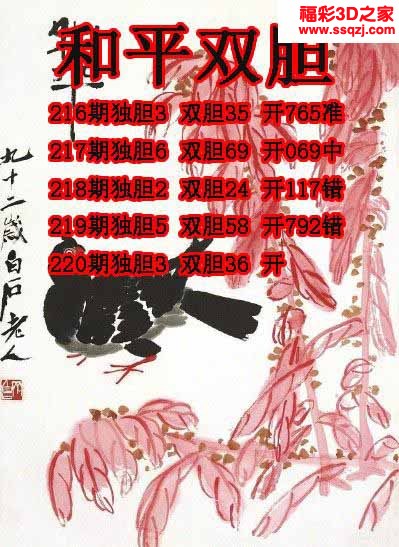 福彩3D之家
www.ssqzj.com
和平双胆
216期独胆3 双胆35 开765准
217期独胆6 双胆69 开069中
218期独胆2 双胆24 开117错
219期独胆5 双胆58 开792错
220期独胆3 双胆36 开
九十二岁白石老人